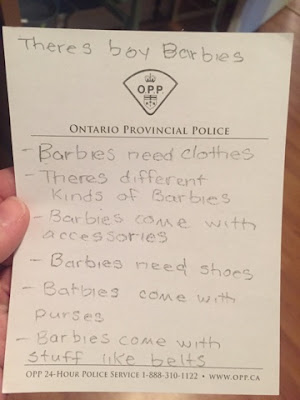 Theres boy Barbies
OPP
ONTARIO PROVINCIAL POLICE
- Barbies need clothes
- Theres different
kinds of Barbies
- Barbies come with
accessories
- Barbies need shoes
- Barbies come with
purses
- Barbies come with
stuff like belts
OPP 24-HOUR POLICE SERVICE 1-888-310-1122 • WWW.OPP.CA